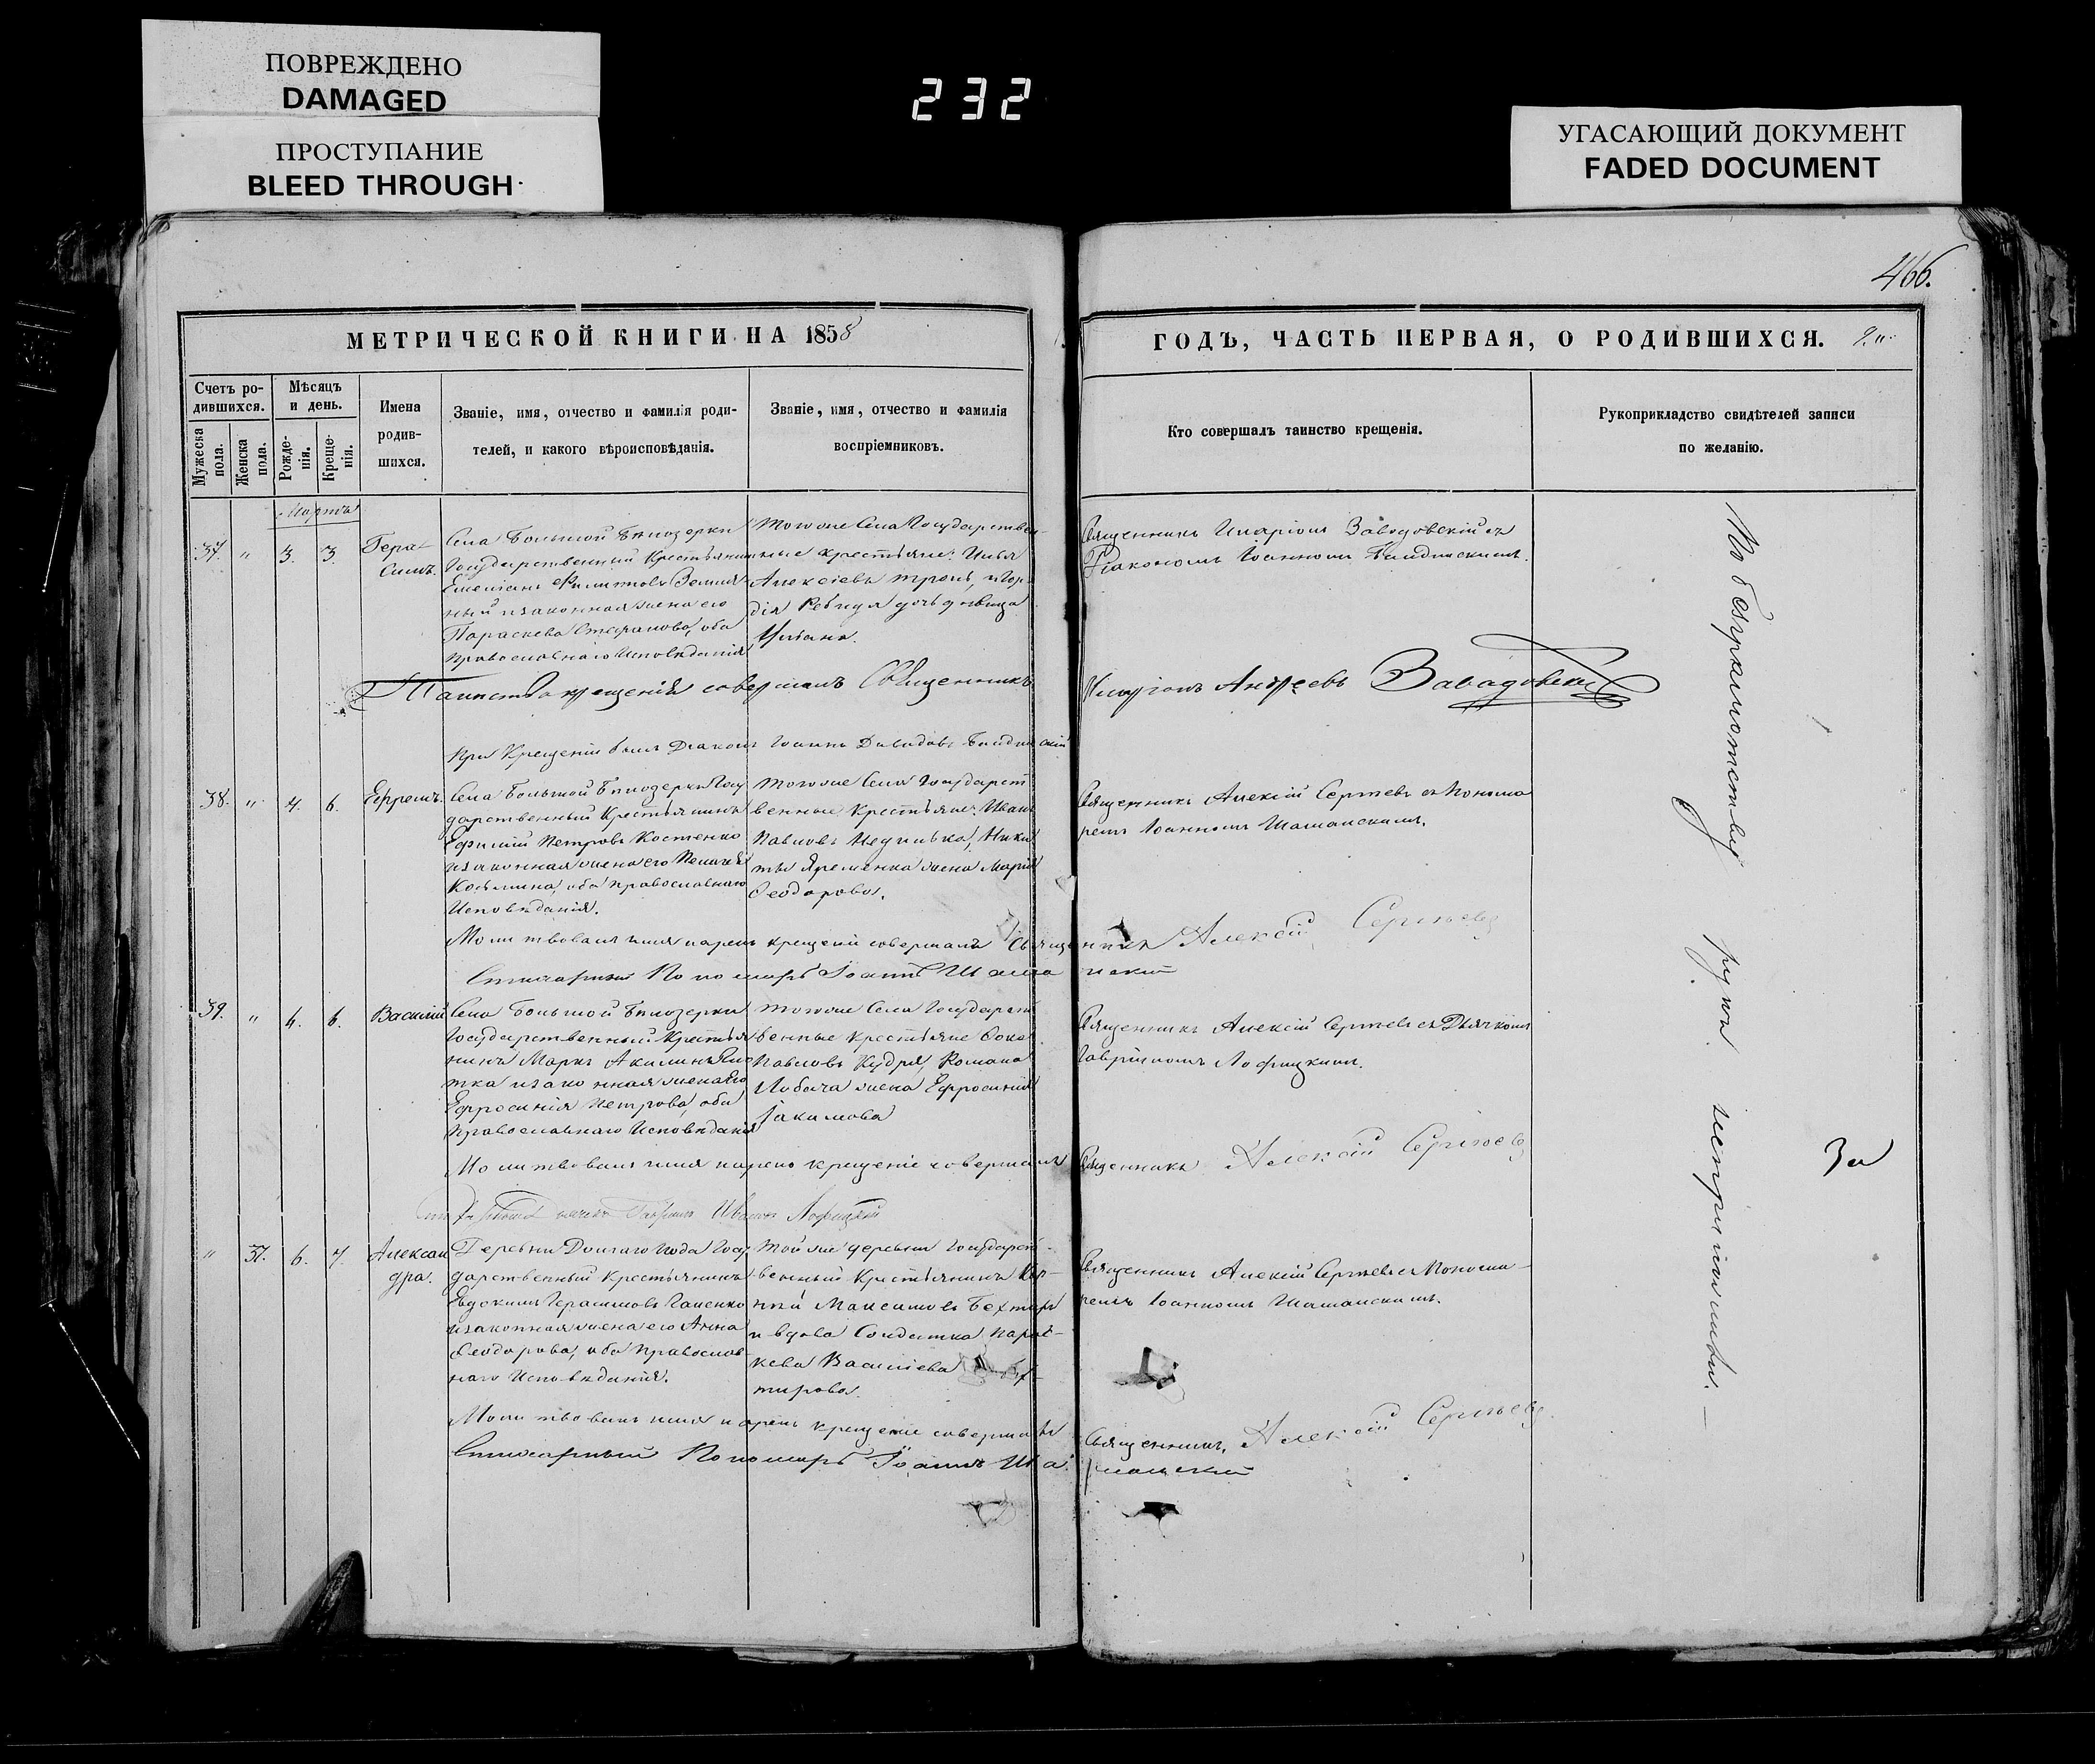 ПОВРЕЖДЕНО
DAMAGED
ПРОСТУПАНИЕ
BLEED THROUGH
232
УГАСАЮЩИЙ ДОКУМЕНТ
FADED DOCUMENT
466.
МЕТРИЧЕСКОЙ КНИГИ НА 1858
Счетъ ро-
дившихся.
Мужеска
пола.
Женска
пола.
Мѣсяцъ
и день.
Рожде-
нія.
Креще-
нія.
Имена
родив-
шихся.
Званіе, имя, отчество и фамилія роди-
телей, и какого вѣроисповѣданія.
Званіе, имя, отчество и фамилія
воспріемниковъ.
ГОДЪ, ЧАСТЬ ПЕРВАЯ, О РОДИВШИХСЯ.
Кто совершалъ таинство крещенія.
Рукоприкладство свидѣтелей записи
по желанію.
Марта
37. " 3. 3.
Гера-
симъ.
Села Большой Бѣлозерки
Государственный Крестьянин
Емеліанъ Филиповъ
ный и законная жена его
Параскева Стефанова, оба
православнаго Исповѣданія
Тогоже Села Государствен-
ные крестьяне: Илья
Алексіевъ
дочь дѣвица
Священникъ Иларіонъ Завадовскій съ
Діакономъ Іоанномъ
Таинство крещенія совершалъ Священникъ Иларіонъ Андреевъ Завадовскій
При Крещеніи былъ Діаконъ Іоаннъ Давидовъ
38. " 4. 6.
Ефремъ.
Села Большой Бѣлозерки Госу
дарственный Крестьянинъ
Ефимій Петровъ Костенко
и законная жена его Пелагія
Козьмина, оба православнаго
Исповѣданія.
Тогоже Села Государст
венные Крестьяне: Иванъ
Павловъ Недилька, Ники
ты Яременка жена Марія
Феодорова.
Священникъ Алексій Сергѣевъ съ Понома
ремъ Іоанномъ Шаманскимъ.
Молитвовалъ имя нарекъ крещеніе совершалъ Священникъ Алексій Сергѣевъ
Пономарь Іоаннъ Шаманскій
39. " 4. 6.
Василій
Села Большой Бѣлозерки
Государственный Крестья
нинъ Маркъ Акимъ
тка и законная жена его
Ефросинія Петрова, оба
Православнаго Исповѣданія
Тогоже Села Государст
венные Крестьяне Фока
Павловъ Кудря, Романа
Лобача жена Ефросинія
Іакимова
Священникъ Алексій Сергѣевъ съ Дьячкомъ
Гавріиломъ Лофицкимъ.
Молитвовалъ имя нарекъ крещеніе совершалъ Священникъ Алексій Сергѣевъ
Гавріилъ Ивановъ Лофицкій
" 37. 6. 7.
Алексан
дра.
Деревни Долгаго Пода Госу
дарственный Крестьянинъ
Евдокимъ Герасимовъ Гаценко
и законная жена его Анна
Феодорова, оба Православ
наго Исповѣданія.
Той же деревни Государст-
венный Крестьянинъ Кор-
ній Максимовъ Бехтиръ
и вдова Солдатка Парас-
кева Василіева Бех-
тирова.
Священникъ Алексій Сергѣевъ съ Понома-
ремъ Іоанномъ Шаманскимъ.
Молитвовалъ имя нарекъ крещеніе совершалъ Священникъ, Алексій Сергѣевъ
Пономарь Іоаннъ Шаманскій
По безграмотству рукъ неприложили.—
За